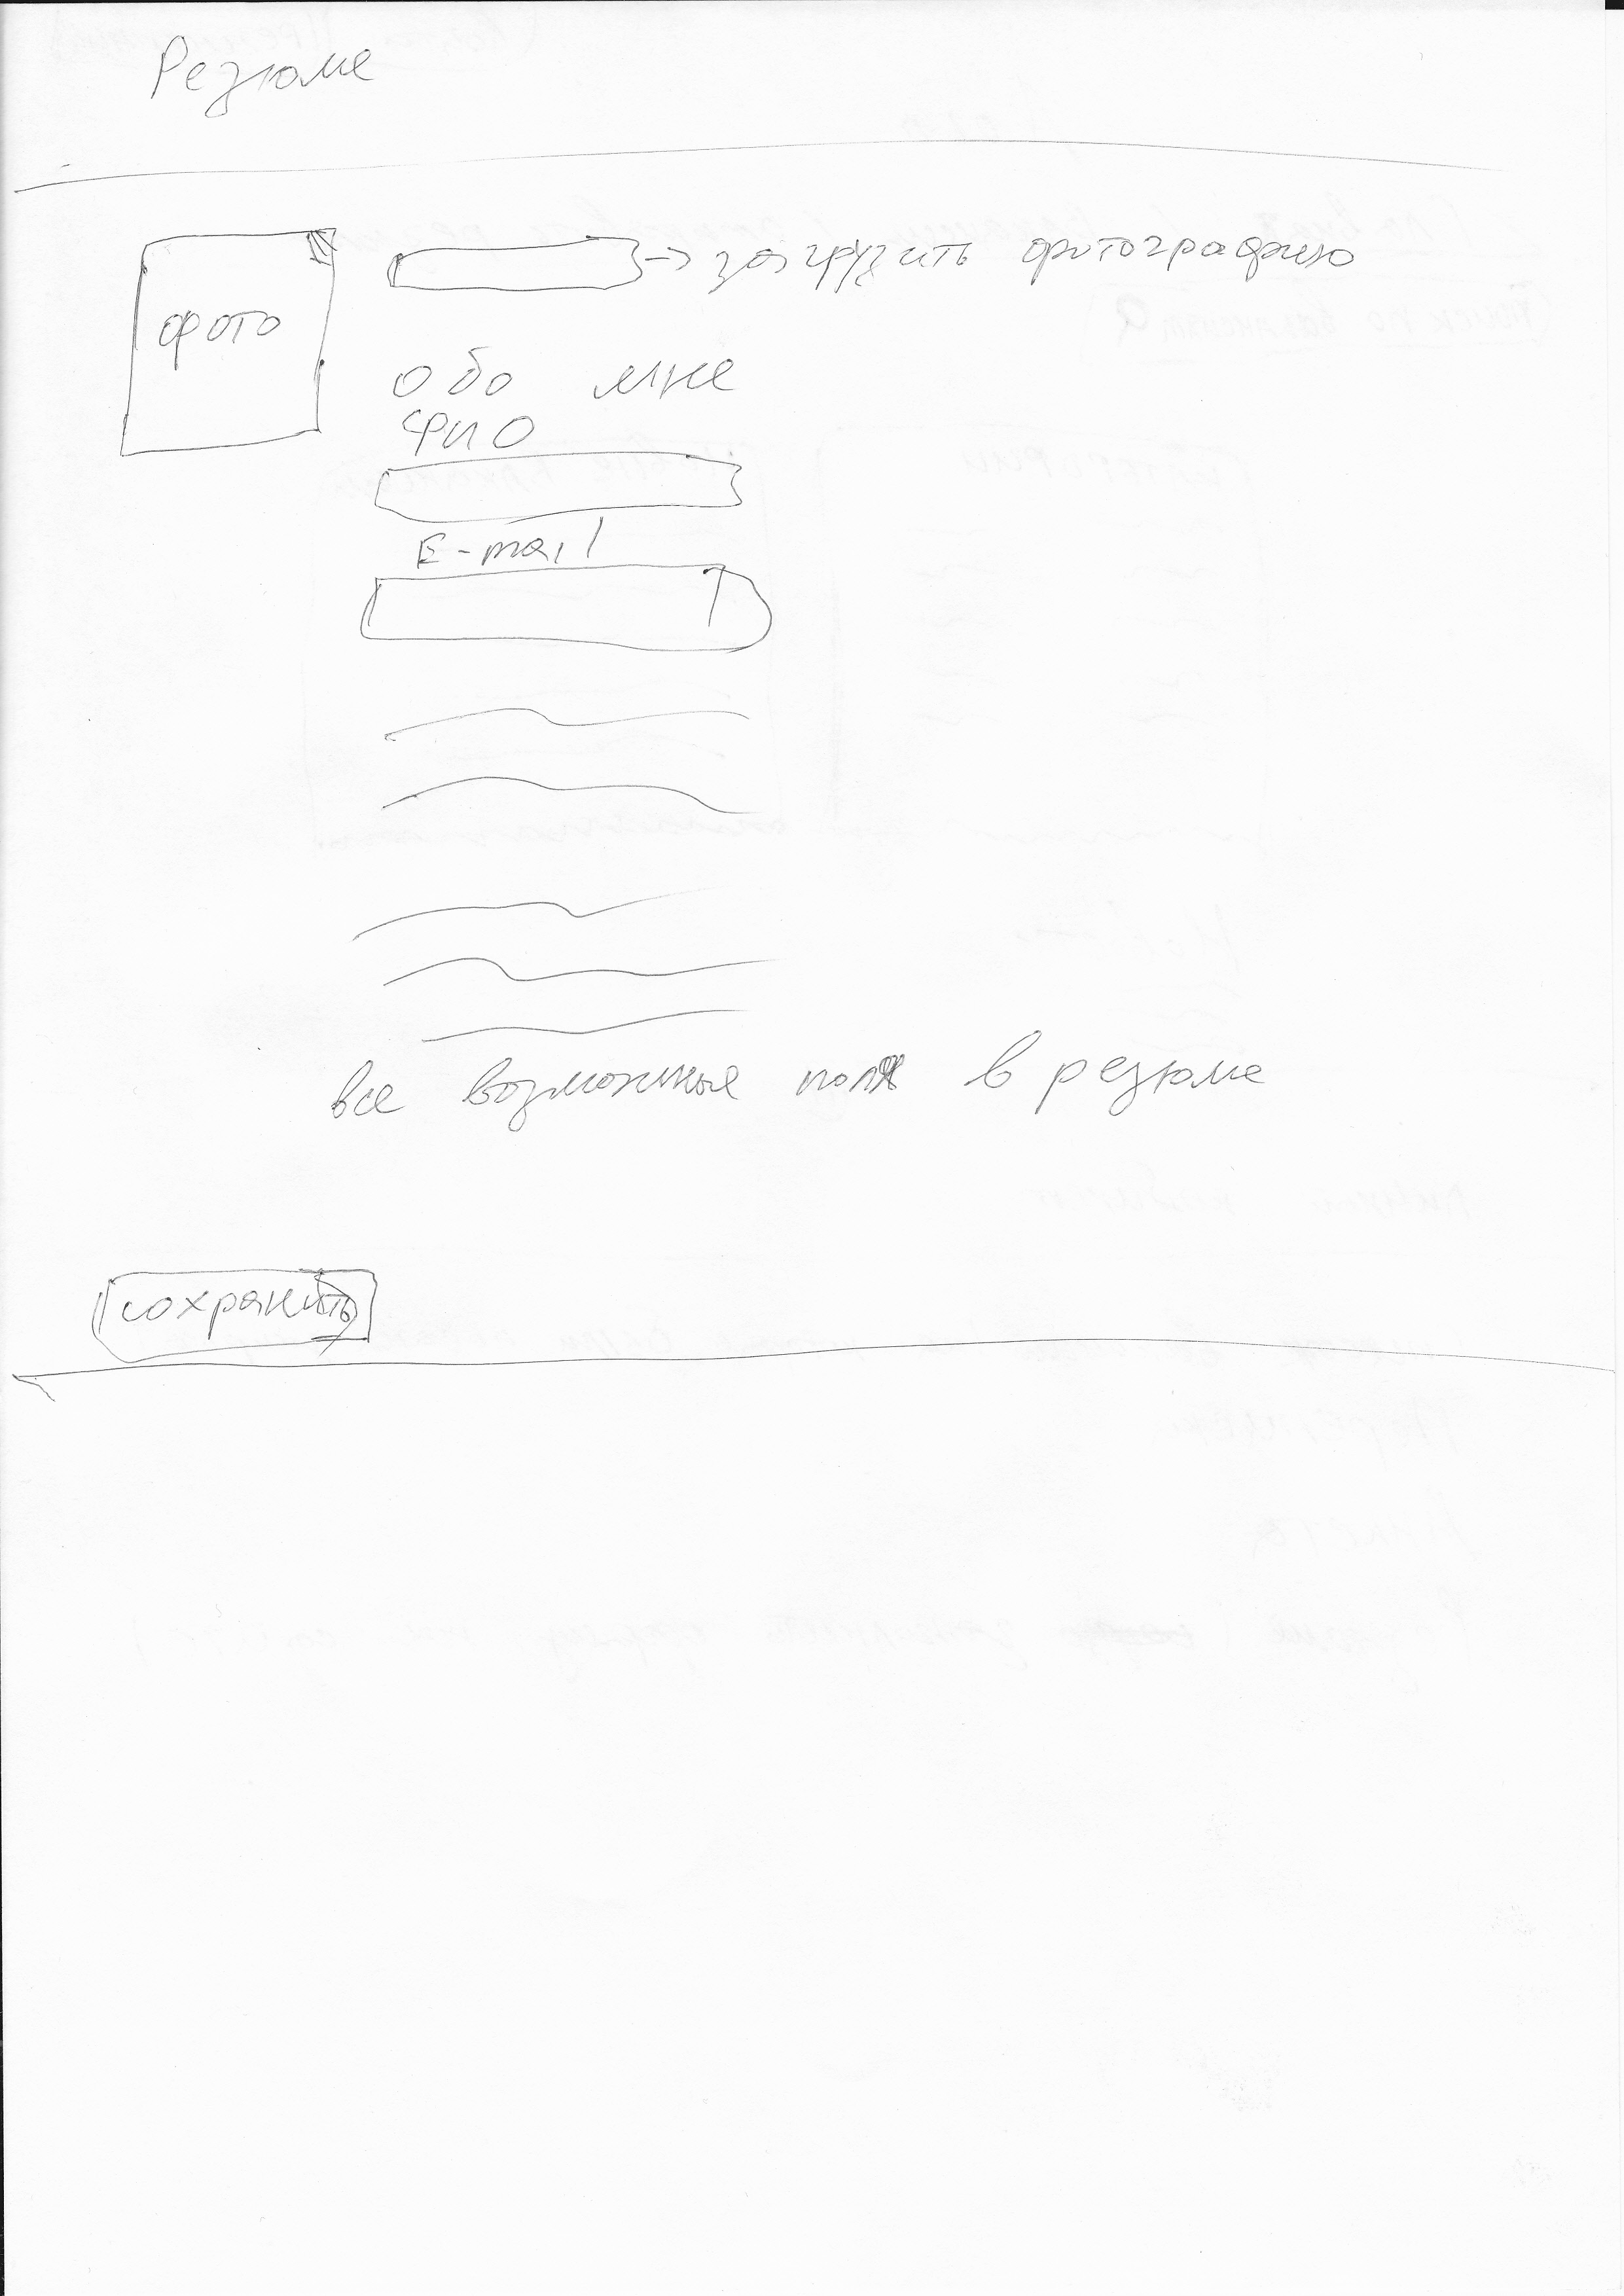 Резюме
фото
→ загрузить фотографию
обо мне
ФИО
E-mail
все возможные поля в резюме
сохранить